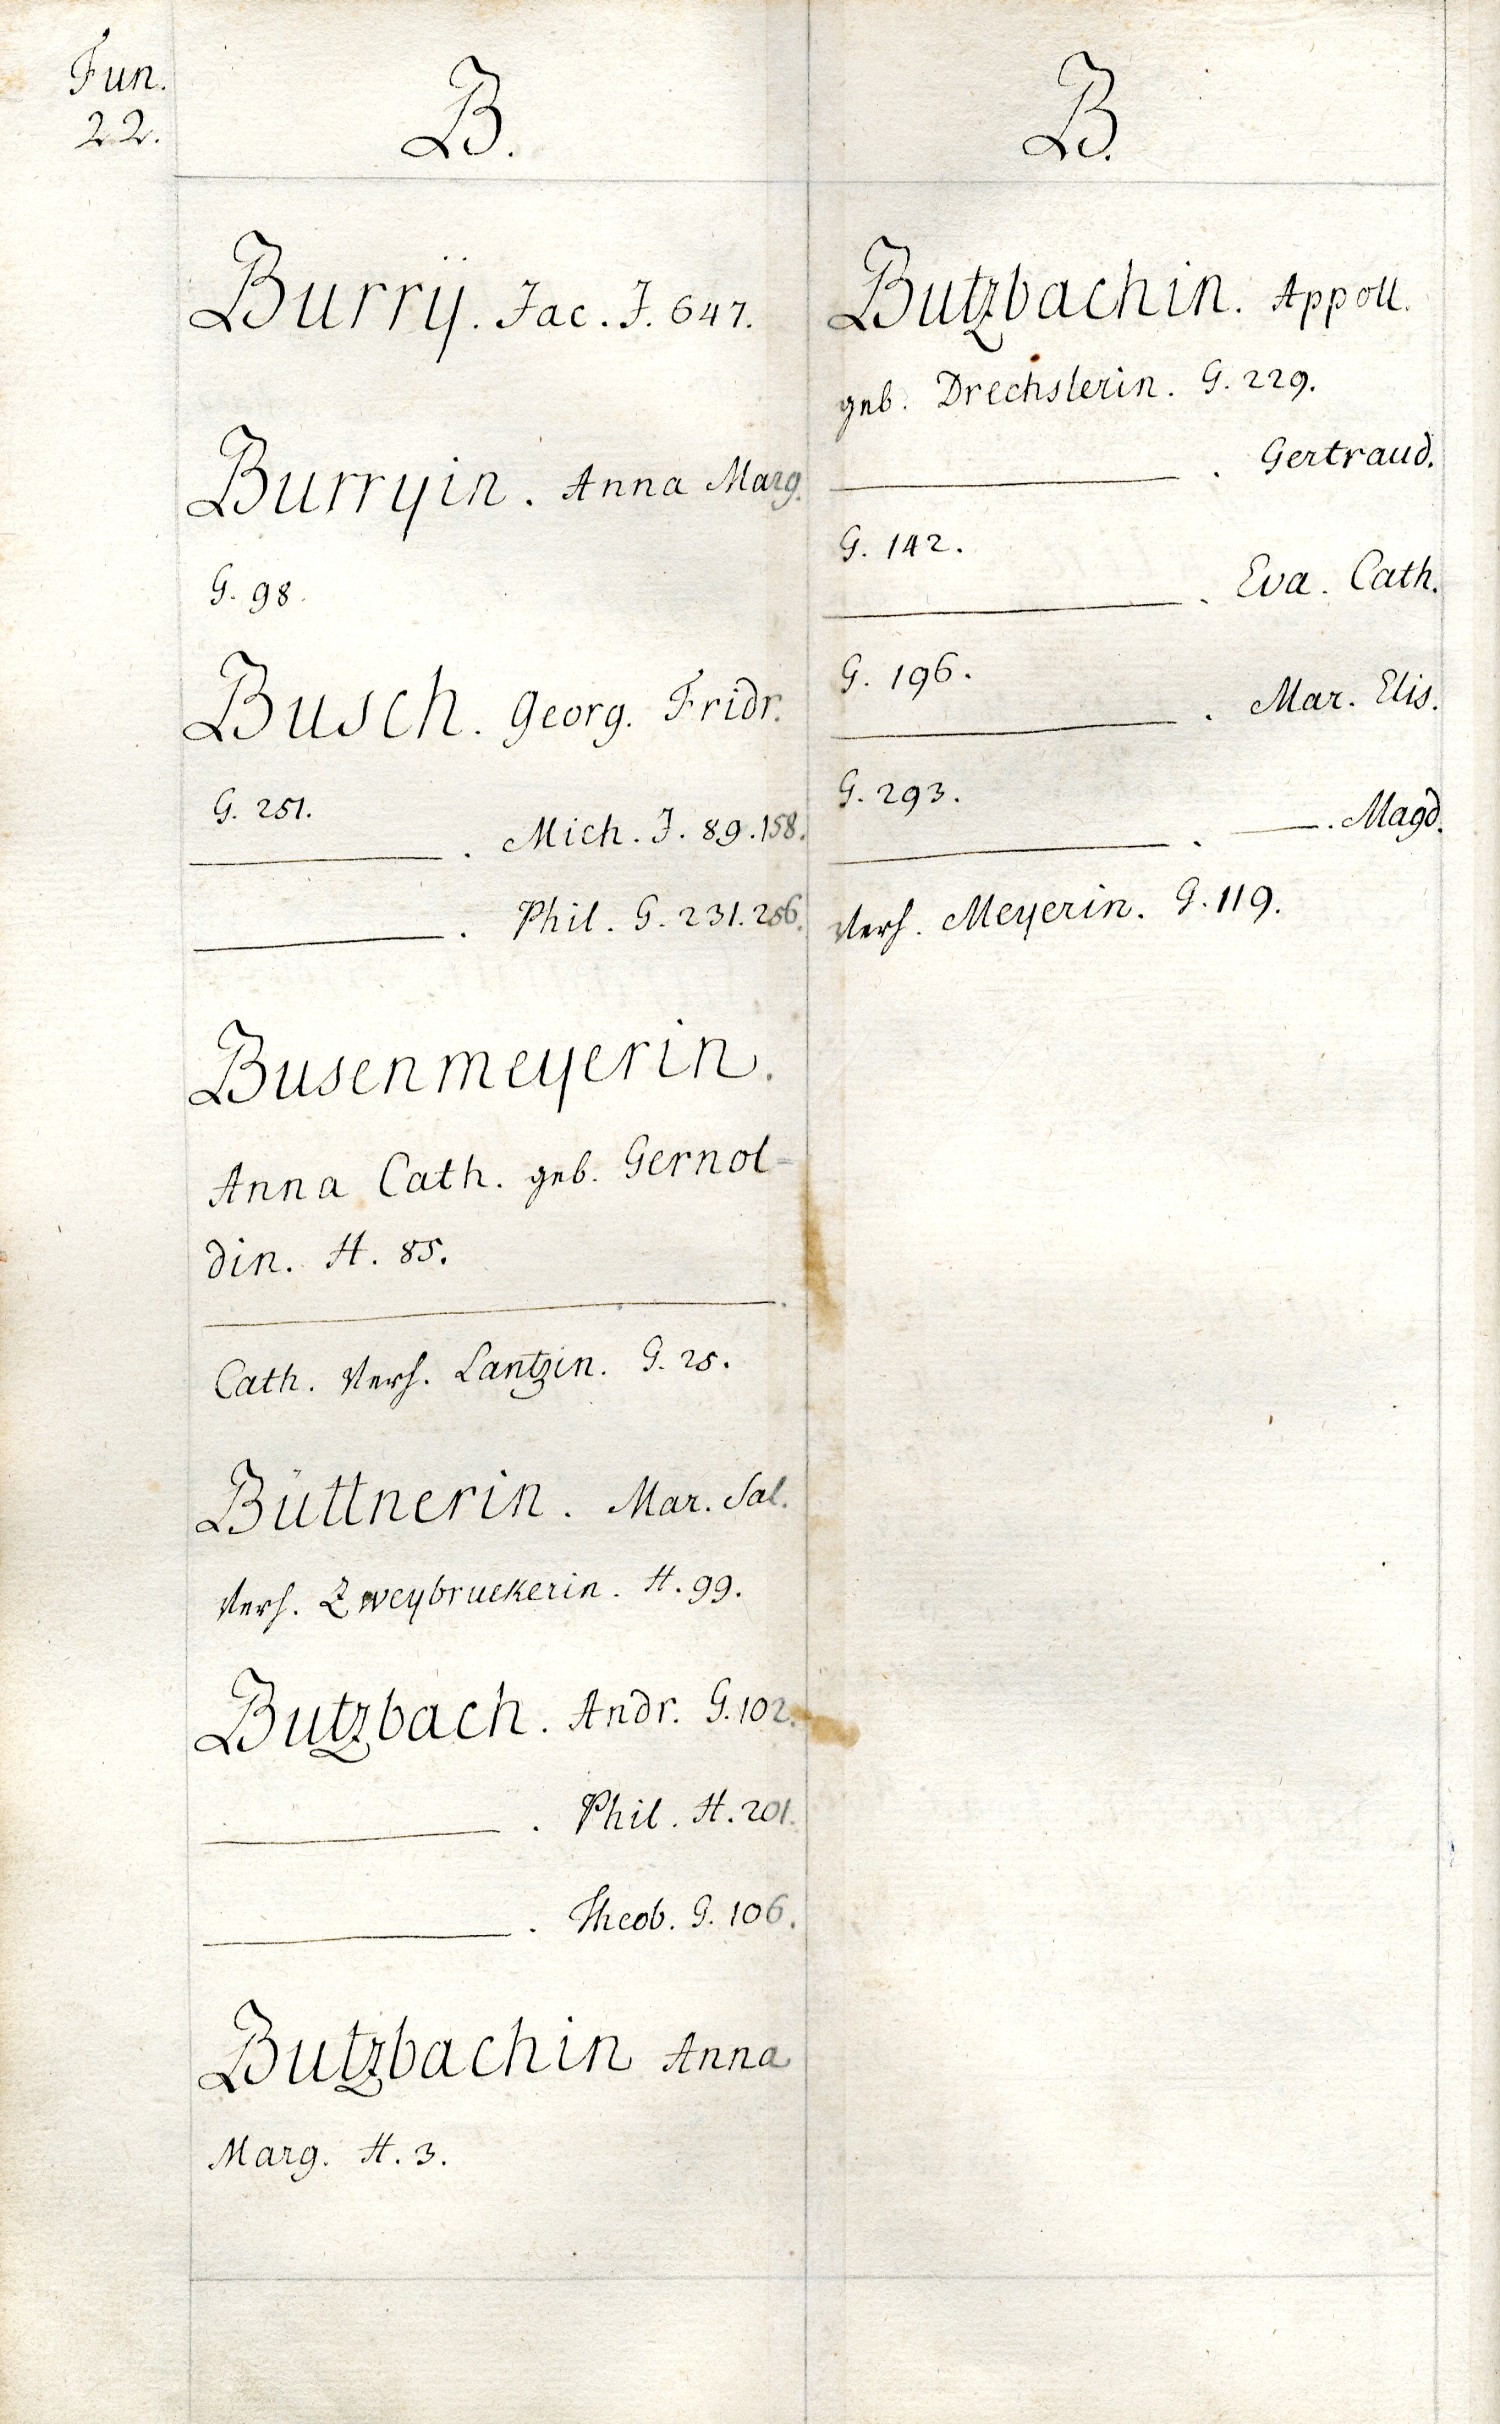 Fun.
22.
B.
Burrÿ. Jac. J. 647.
Burryin. Anna Marg.
G. 98.
Busch. Georg. Fridr.
G. 251.
———. Mich. J. 89. 158.
———. Phil. G. 231. 256.
Busenmeyerin.
Anna Cath. geb. Gernol-
din. H. 85.
———.
Cath. Verh. Lantzin. G. 25.
Büttnerin. Mar. Sal.
Verh. Zweybruckerin. H. 99.
Butzbach. Andr. G. 102.
———. Phil. H. 201.
———. Theob. G. 106.
Butzbachin Anna
Marg. H. 3.
B.
Butzbachin. Appoll.
geb. Drechslerin. G. 229.
———. Gertraud.
G. 142.
———. Eva. Cath.
G. 196.
———. Mar. Elis.
G. 293.
———. ——. Magd.
Verh. Meyerin. G. 119.